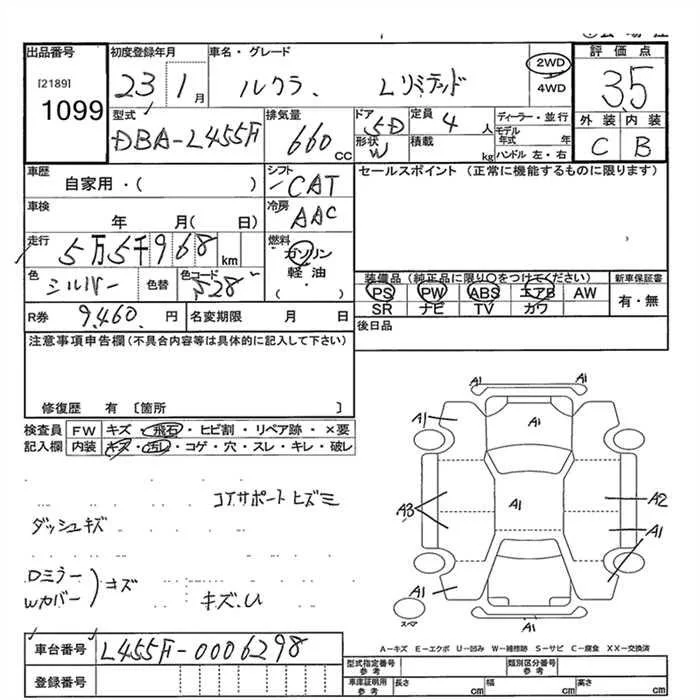 出品番号
[2189]
1099
初度登録年月
23 1月
車名・グレード
ルクラ. Lリミテッド
2WD
4WD
評価点
3.5
外装 内装
C B
型式
DBA-L455F
排気量
660cc
ドア
5D
形状
W
定員
4人
積載
kg
ディーラー・並行
モデル年式 年
ハンドル 左・右
車歴
自家用・( )
シフト
CAT
セールスポイント (正常に機能するものに限ります)
車検
年 月( 日)
冷房
AAC
走行
5万5千968km
燃料
ガソリン
軽油
( )
色
シルバー
色替
色コード
S28
装備品 (純正品に限り○をつけてください)
新車保証書
PS PW ABS エアB AW
SR ナビ TV カワ
有・無
R券
9,460.円
名変期限 月 日
後日品
注意事項申告欄(不具合内容等は具体的に記入して下さい)
修復歴 有〔箇所 〕
検査員 FW キズ・飛石・ヒビ割・リペア跡・×要
記入欄 内装 キズ・汚レ・コゲ・穴・スレ・キレ・破レ
コアサポートヒズミ
ダッシュキズ
Dミラー
Wカバー
キズ
キズ.U
A1 A1
A1 A1 A1
A3 A1 A2
A1
A1 A1
A1
スペア
A-キズ E-エクボ U-凹み W-補修跡 S-サビ C-腐食 XX-交換済
車台番号
L455F-0006298
登録番号
型式指定番号
参考
類別区分番号
参考
車庫証明用
参考
長さ cm 幅 cm 高さ cm